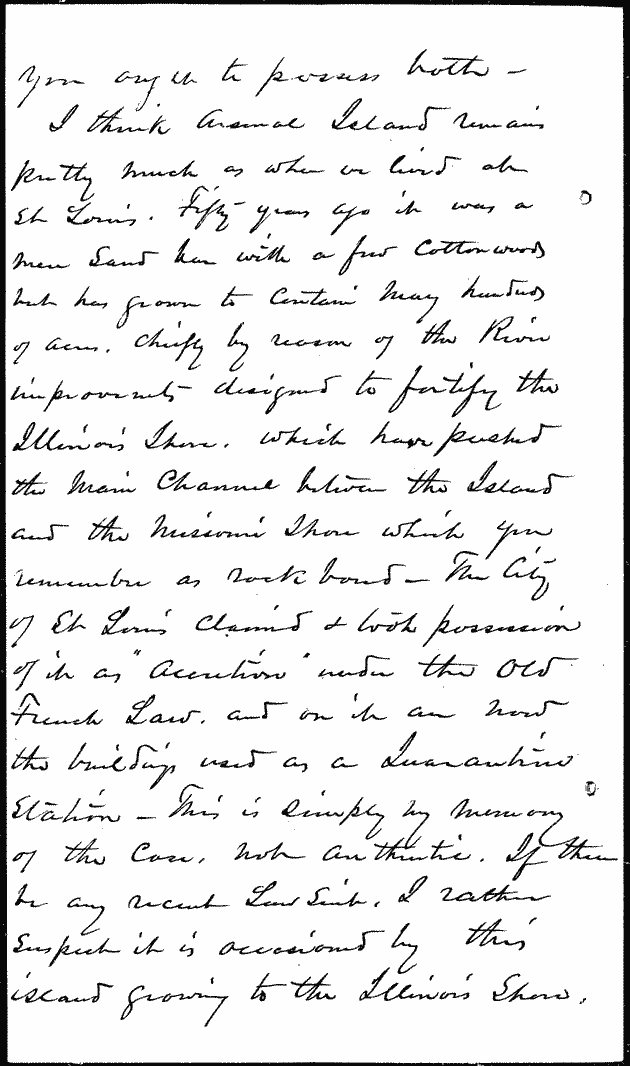 You ought to possess both —
I think Arsenal Island remains
pretty much as when we lived at
St Louis. Fifty years ago it was a
mere Sand bar with a few Cottonwoods
but has grown to Contain Many hundreds
of acres. Chiefly by reason of the River
improvements designed to fortify the
Illinois Shore. which have pushed
the Main Channel between the Island
and the Missouri Shore which you
remember as rock bound — The City
of St Louis Claimed & took possession
of it as "accretion" under the Old
French Law. and on it are now
the buildings used as a Quarantine
Station — This is Simply my memory
of the Case. not authentic. If there
be any recent Law Suit. I rather
Suspect it is occasioned by this
island growing to the Illinois Shore.